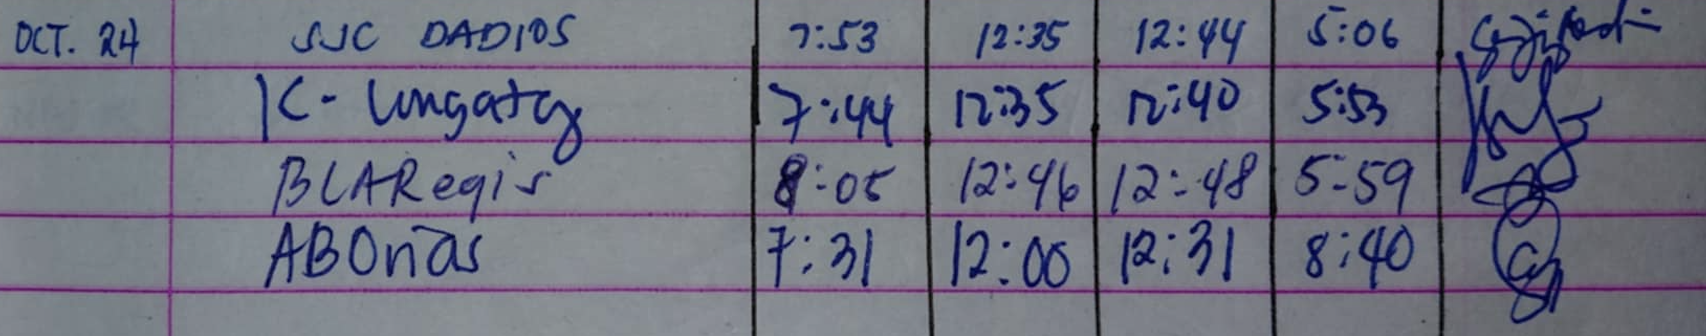 OCT. 24 SJC DADIOS 7:53 12:35 12:44 5:06
K- Lungatg 7:44 12:35 12:40 5:53
BLARegis 8:05 12:46 12:48 5:59
ABOnas 7:31 12:00 12:31 8:40